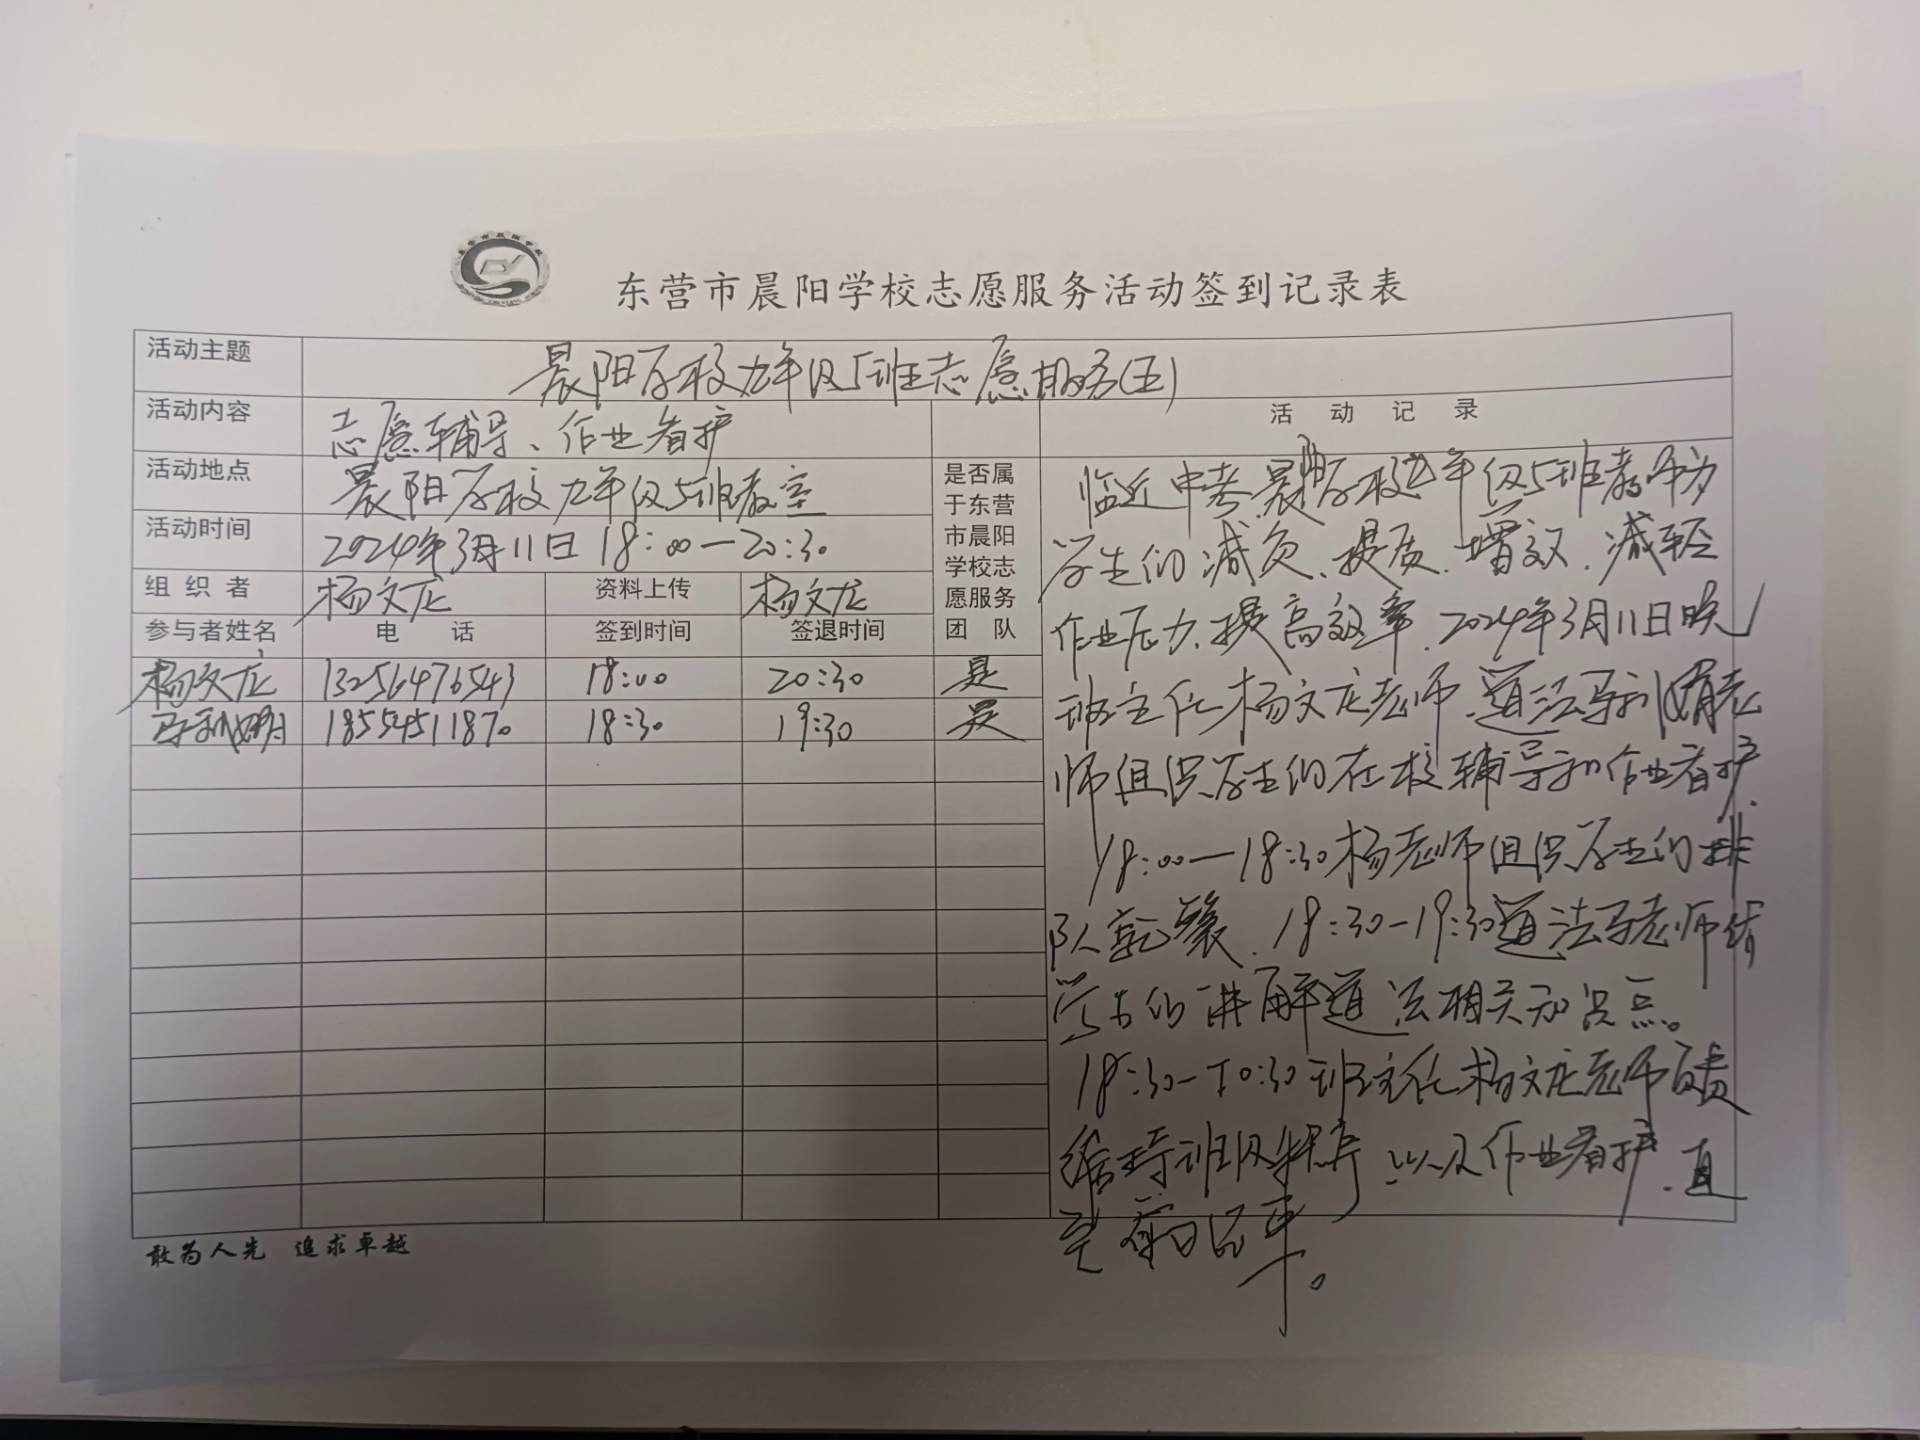 东营市晨阳学校志愿服务活动签到记录表
活动主题 晨阳学校九年级5班志愿服务(五)
活动内容 志愿辅导、作业看护
活动记录
活动地点 晨阳学校九年级5班教室
活动时间 2024年3月11日 18:00—20:30
组织者 杨文龙 资料上传 杨文龙
是否属
于东营
市晨阳
学校志
愿服务
团队
参与者姓名 电话 签到时间 签退时间
杨文龙 13256476543 18:00 20:30 是
18554511870 18:30 19:30 是
临近中考,晨阳学校九年级5班教师为
学生们减负、提质、增效、减轻
作业压力、提高效率.2024年3月11日晚
班主任杨文龙老师、道法马老
师组织学生们在校辅导和作业看护.
18:00—18:30杨老师组织学生们排
队就餐.18:30-19:30道法马老师给
学生们讲解道法相关知识点。
18:30-20:30班主任杨文龙老师负责
维持班级秩序,以及作业看护.直
至
敢为人先 追求卓越